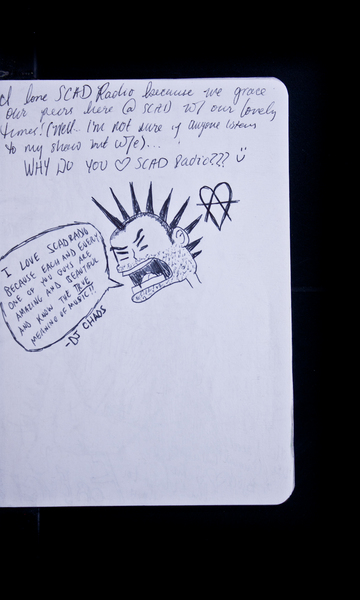 I love SCAD Radio because we grace
our peers here @ SCAD w/ our lovely
tunes! (Well.. I'm not sure if anyone listens
to my show but w/e)...
WHY DO YOU ♡ SCAD Radio??? :)
I LOVE SCAD RADIO
BECAUSE EACH AND EVERY
ONE OF YOU GUYS ARE
AMAZING AND BEAUTIFUL
AND KNOW THE TRUE
MEANING OF MUSIC!!
-DJ CHAOS